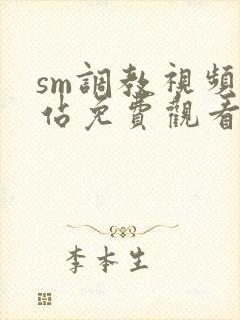 sm調教視頻
佔免費觀看
李本生